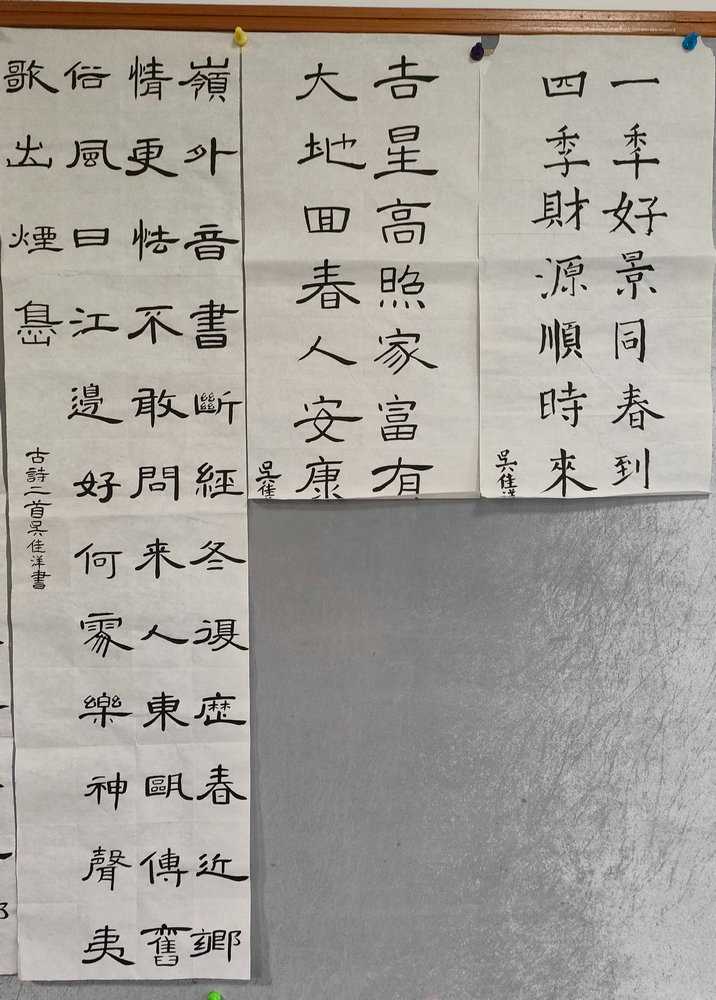 一秊好景同春到
四季財源順時來
吳佳洋
吉星高照家富有
大地囬春人安康
吳佳
嶺外音書斷經冬復歷春近鄉
情更怯不敢問来人東甌傳舊
俗風日江邊好何處樂神聲夷
歌出煙島
古詩二首吳佳洋書